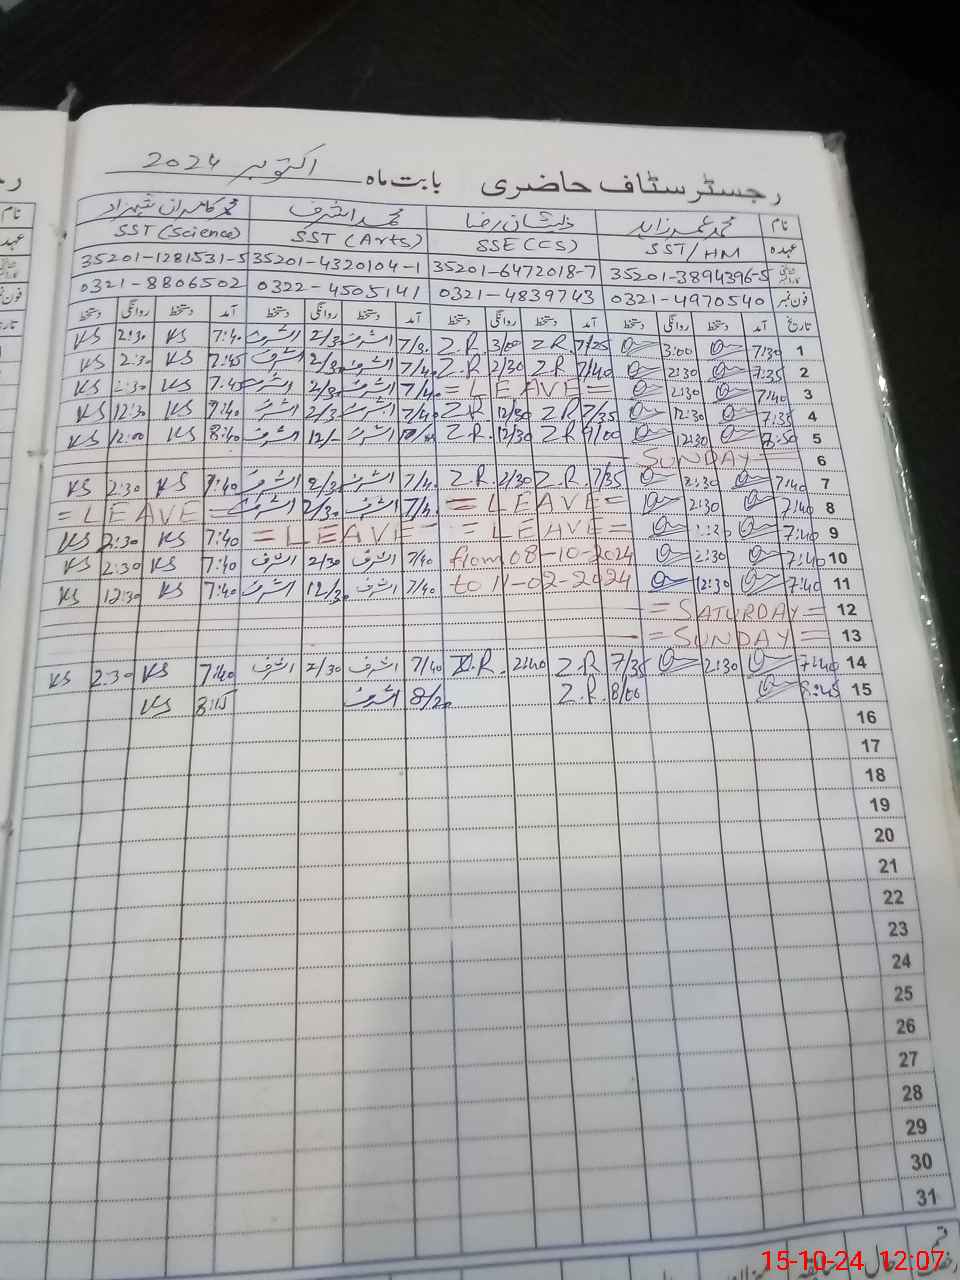 اکتوبر 2024 بابت ماہ رجسٹر سٹاف حاضری
نام محمد عمر زاہد ذیشان رضا محمد اشرف محمد کامران شہزاد
عہدہ SST/HM SSE (CS) SST (Arts) SST (Science)
35201-3894396-5 35201-6472018-7 35201-4320104-1 35201-1281531-5
فون نمبر 0321-4970540 0321-4839743 0322-4505141 0321-8806502
تاریخ آمد دستخط روانگی دستخط آمد دستخط روانگی دستخط آمد دستخط روانگی دستخط آمد دستخط روانگی دستخط
1 7:30 3:00 7/25 Z.R 3/00 Z.R اشرف اشرف 7:40 KS 2:30 KS
2 7:35 2:30 7/40 Z.R 2/30 Z.R 7/40 اشرف اشرف 7:45 KS 2:30 KS
3 7:40 2:30 = LEAVE = 7/40 اشرف اشرف 7:45 KS 2:30 KS
4 7:35 12:30 7/35 Z.R 12/30 Z.R 7/40 اشرف 2/3 اشرف 7:40 KS 12:30 KS
5 12:30 9/00 Z.R 12/30 Z.R. اشرف 12/- اشرف 8:40 KS 12:00 KS
6 SUNDAY =
7 7:40 2:30 7/35 Z.R 2/30 Z.R. 7/40 اشرف اشرف 7:40 KS 2:30 KS
8 7:40 2:30 = LEAVE = 7/40 اشرف اشرف = LEAVE =
9 7:40 = LEAVE = = LEAVE = 7:40 KS 2:30 KS
10 7:40 2:30 from 08-10-2024 7/40 اشرف 2/30 اشرف 7:40 KS 2:30 KS
11 7:40 12:30 to 11-02-2024 7/40 اشرف اشرف 7:40 KS 12:30 KS
12 = SATURDAY =
13 = SUNDAY =
14 7:40 2:30 7/35 Z.R 2:40 Z.R. 7/40 اشرف 2/30 اشرف 7:40 KS 2:30 KS
15 8:45 8/00 Z.R. 8/20 اشرف 8:15 KS
16
17
18
19
20
21
22
23
24
25
26
27
28
29
30
31
15-10-24 12:07